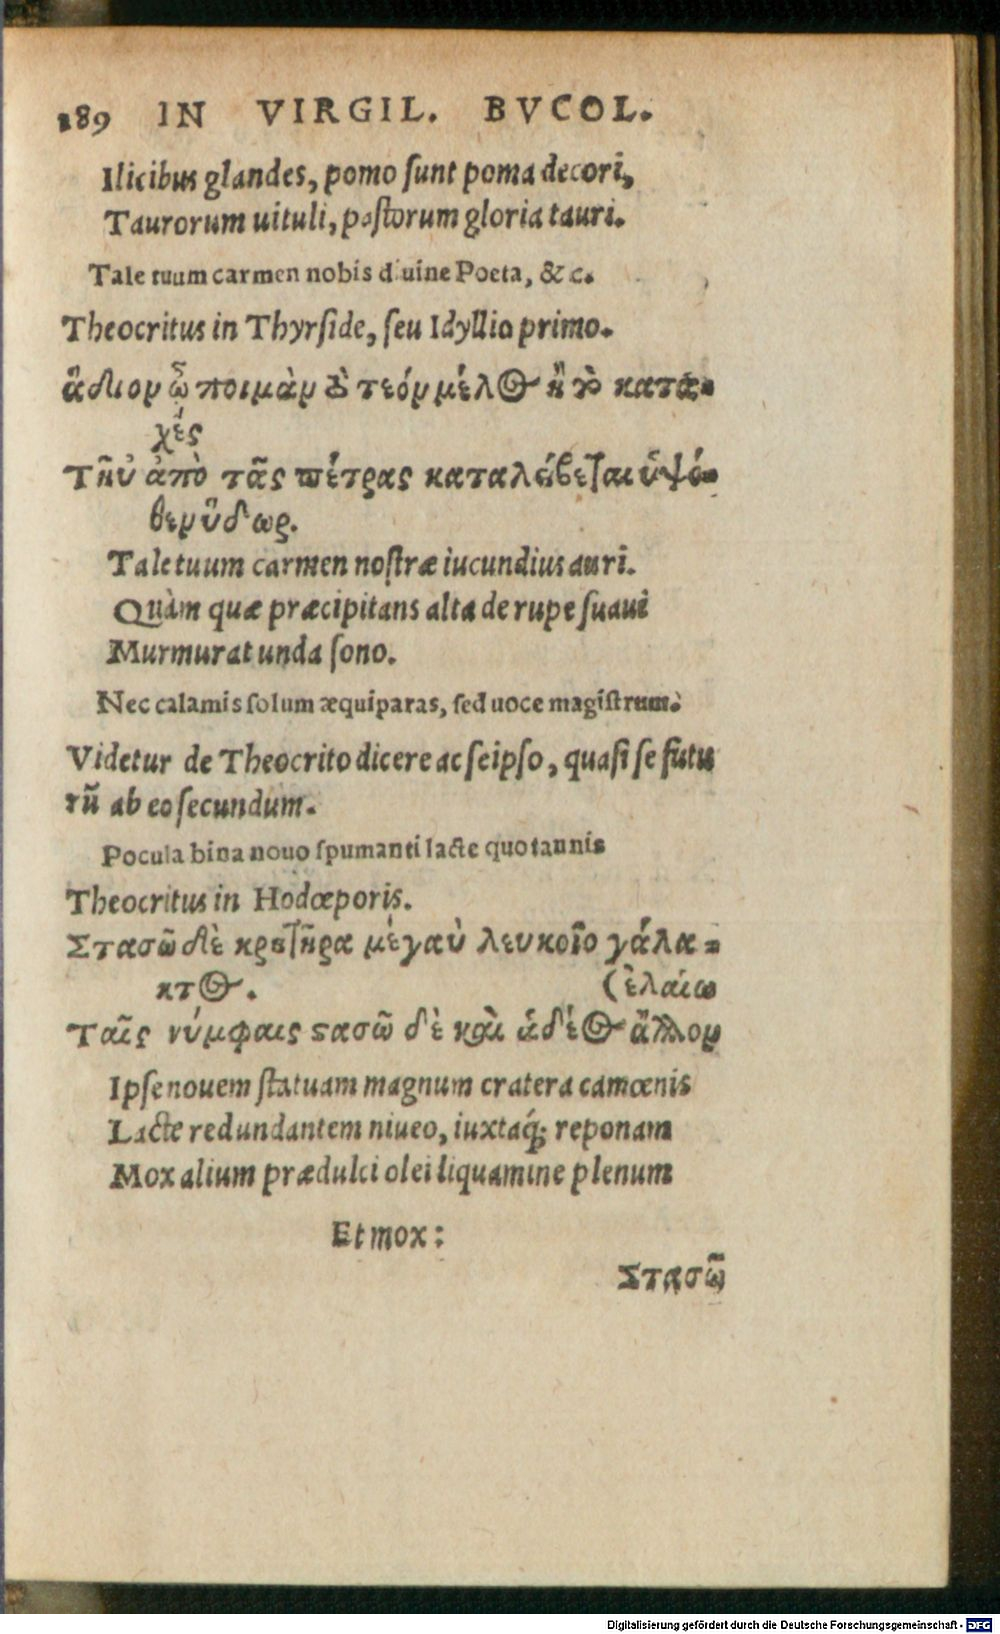 189 IN VIRGIL. BVCOL.
Ilicibus glandes, pomo ſunt poma decori,
Taurorum uituli, paſtorum gloria tauri.
Tale tuum carmen nobis diuine Poeta, &c.
Theocritus in Thyrſide, ſeu Idyllio primo.
ἅδιον ὦ ποιμὰν τὸ τεόν μέλος ἢ τὸ κατα-
χὲς
Τῆν̓ ἀπὸ τᾶς πέτρας καταλείβεται ὑψό-
θεν ὕδωρ.
Tale tuum carmen noſtræ iucundius auri.
Quàm quæ præcipitans alta de rupe ſuaui
Murmurat unda ſono.
Nec calamis ſolum æquiparas, ſed uoce magiſtrum.
Videtur de Theocrito dicere ac ſeipſo, quaſi ſe futu
rũ ab eo ſecundum.
Pocula bina nouo ſpumanti lacte quotannis
Theocritus in Hodœporis.
Στασῶ δὲ κρατῆρα μέγαν̓ λευκοῖο γάλα-
κτος.
(ἐλαίω
Ταῖς νύμφαις στασῶ δὲ καὶ ἁδέος ἄλλον
Ipſe nouem ſtatuam magnum cratera camœnis
Lacte redundantem niueo, iuxtaq́; reponam
Mox alium prædulci olei liquamine plenum
Et mox:
Στασῶ
Digitalisierung gefördert durch die Deutsche Forschungsgemeinschaft - DFG